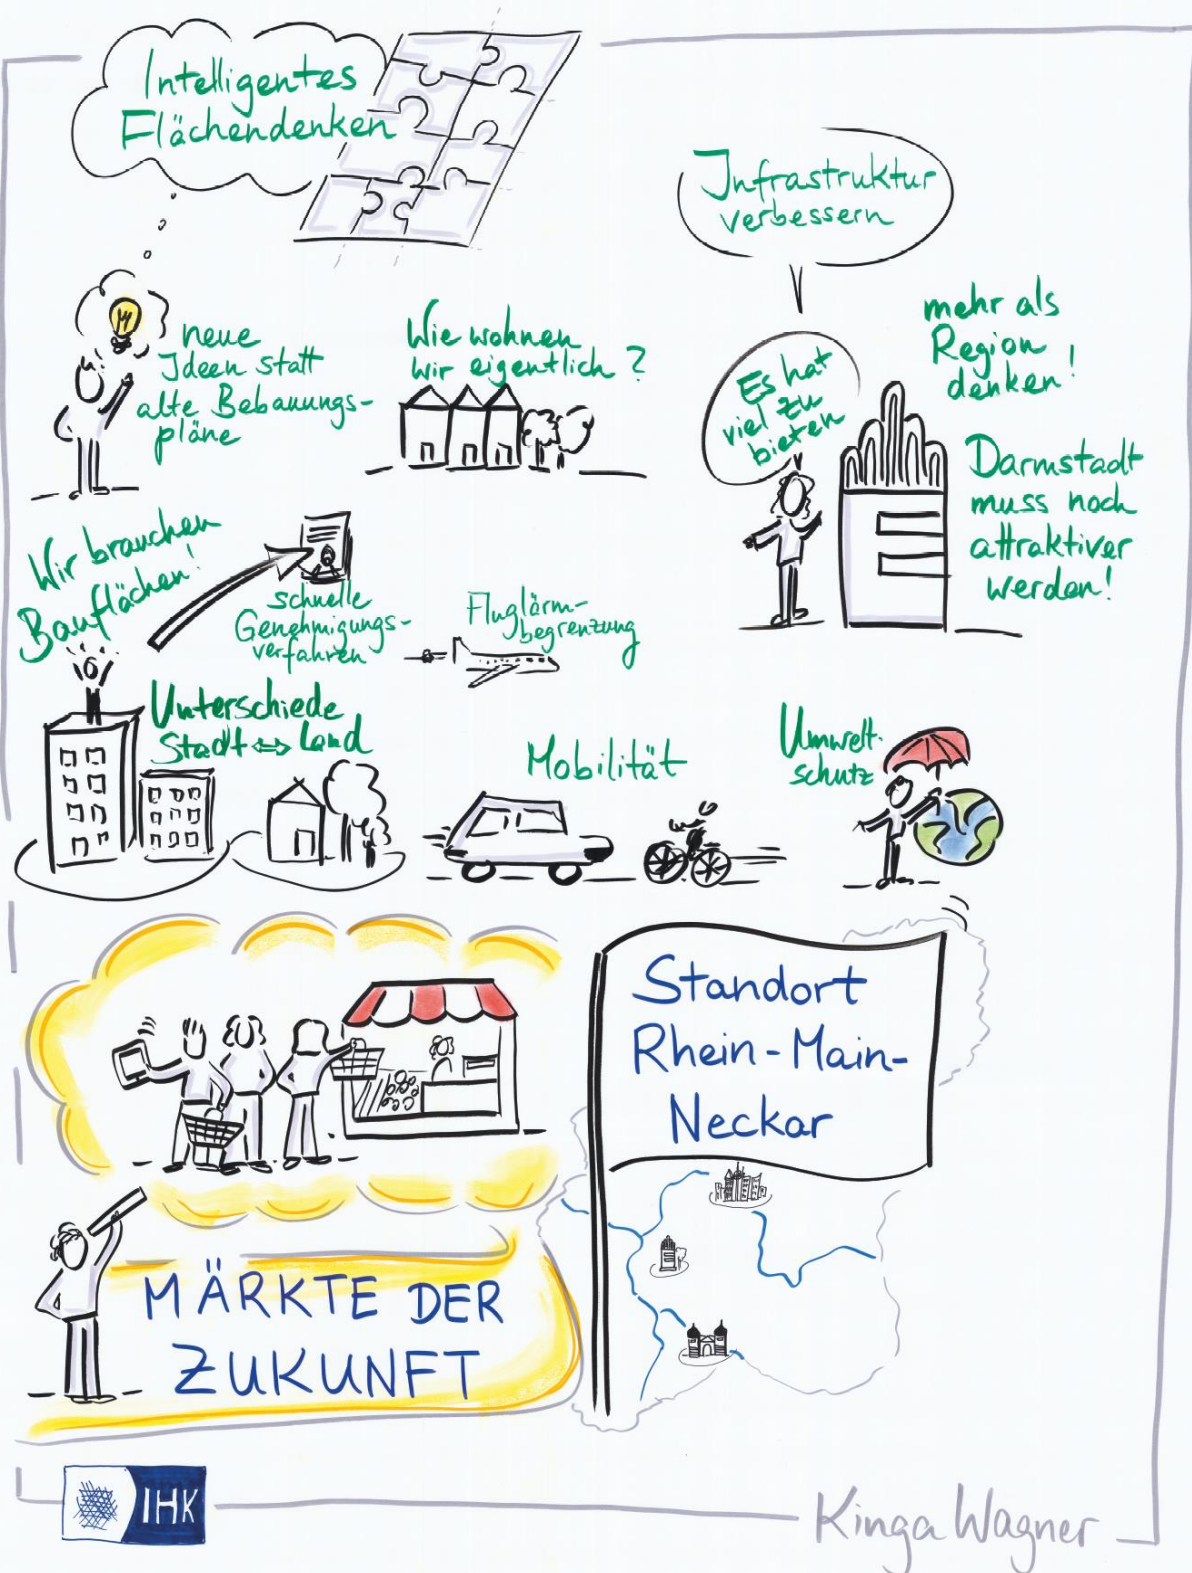 Intelligentes
Flächendenken
Infrastruktur
verbessern
neue
Ideen statt
alte Bebauungs-
pläne
Wie wohnen
wir eigentlich?
Es hat
viel zu
bieten
mehr als
Region
denken!
Darmstadt
muss noch
attraktiver
werden!
Wir brauchen
Bauflächen!
schnelle
Genehmigungs-
verfahren
Fluglärm-
begrenzung
Unterschiede
Stadt ⇔ Land
Mobilität
Umwelt-
schutz
Standort
Rhein-Main-
Neckar
MÄRKTE DER
ZUKUNFT
IHK
Kinga Wagner